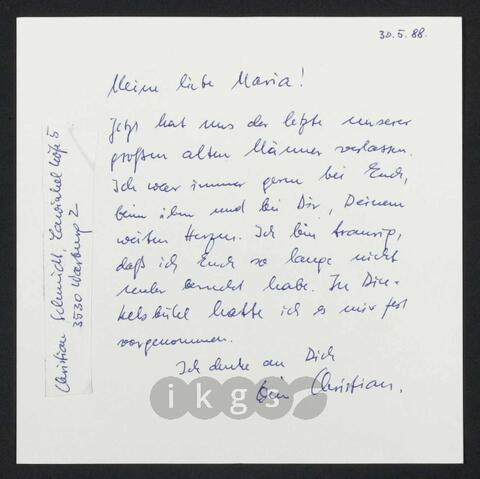 30.5.88.
Meine liebe Maria!
Jetzt hat uns der letzte unserer
großen alten Männer verlassen.
Ich war immer gern bei Euch,
beim ihm und bei Dir, Deinem
weiten Herzen. Ich bin traurig,
daß ich Euch so lange nicht
mehr besucht habe. In Din-
kelsbühl hatte ich es mir fest
vorgenommen.
Ich denke an Dich
Dein Christian.
Christian Schmidt, höfe 5
3530 Warburg 2
ikgs